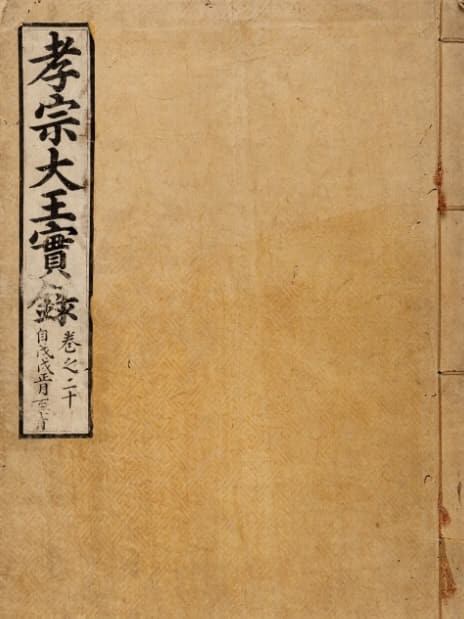 孝宗大王實錄
卷之二十
自戊戌正月至六月